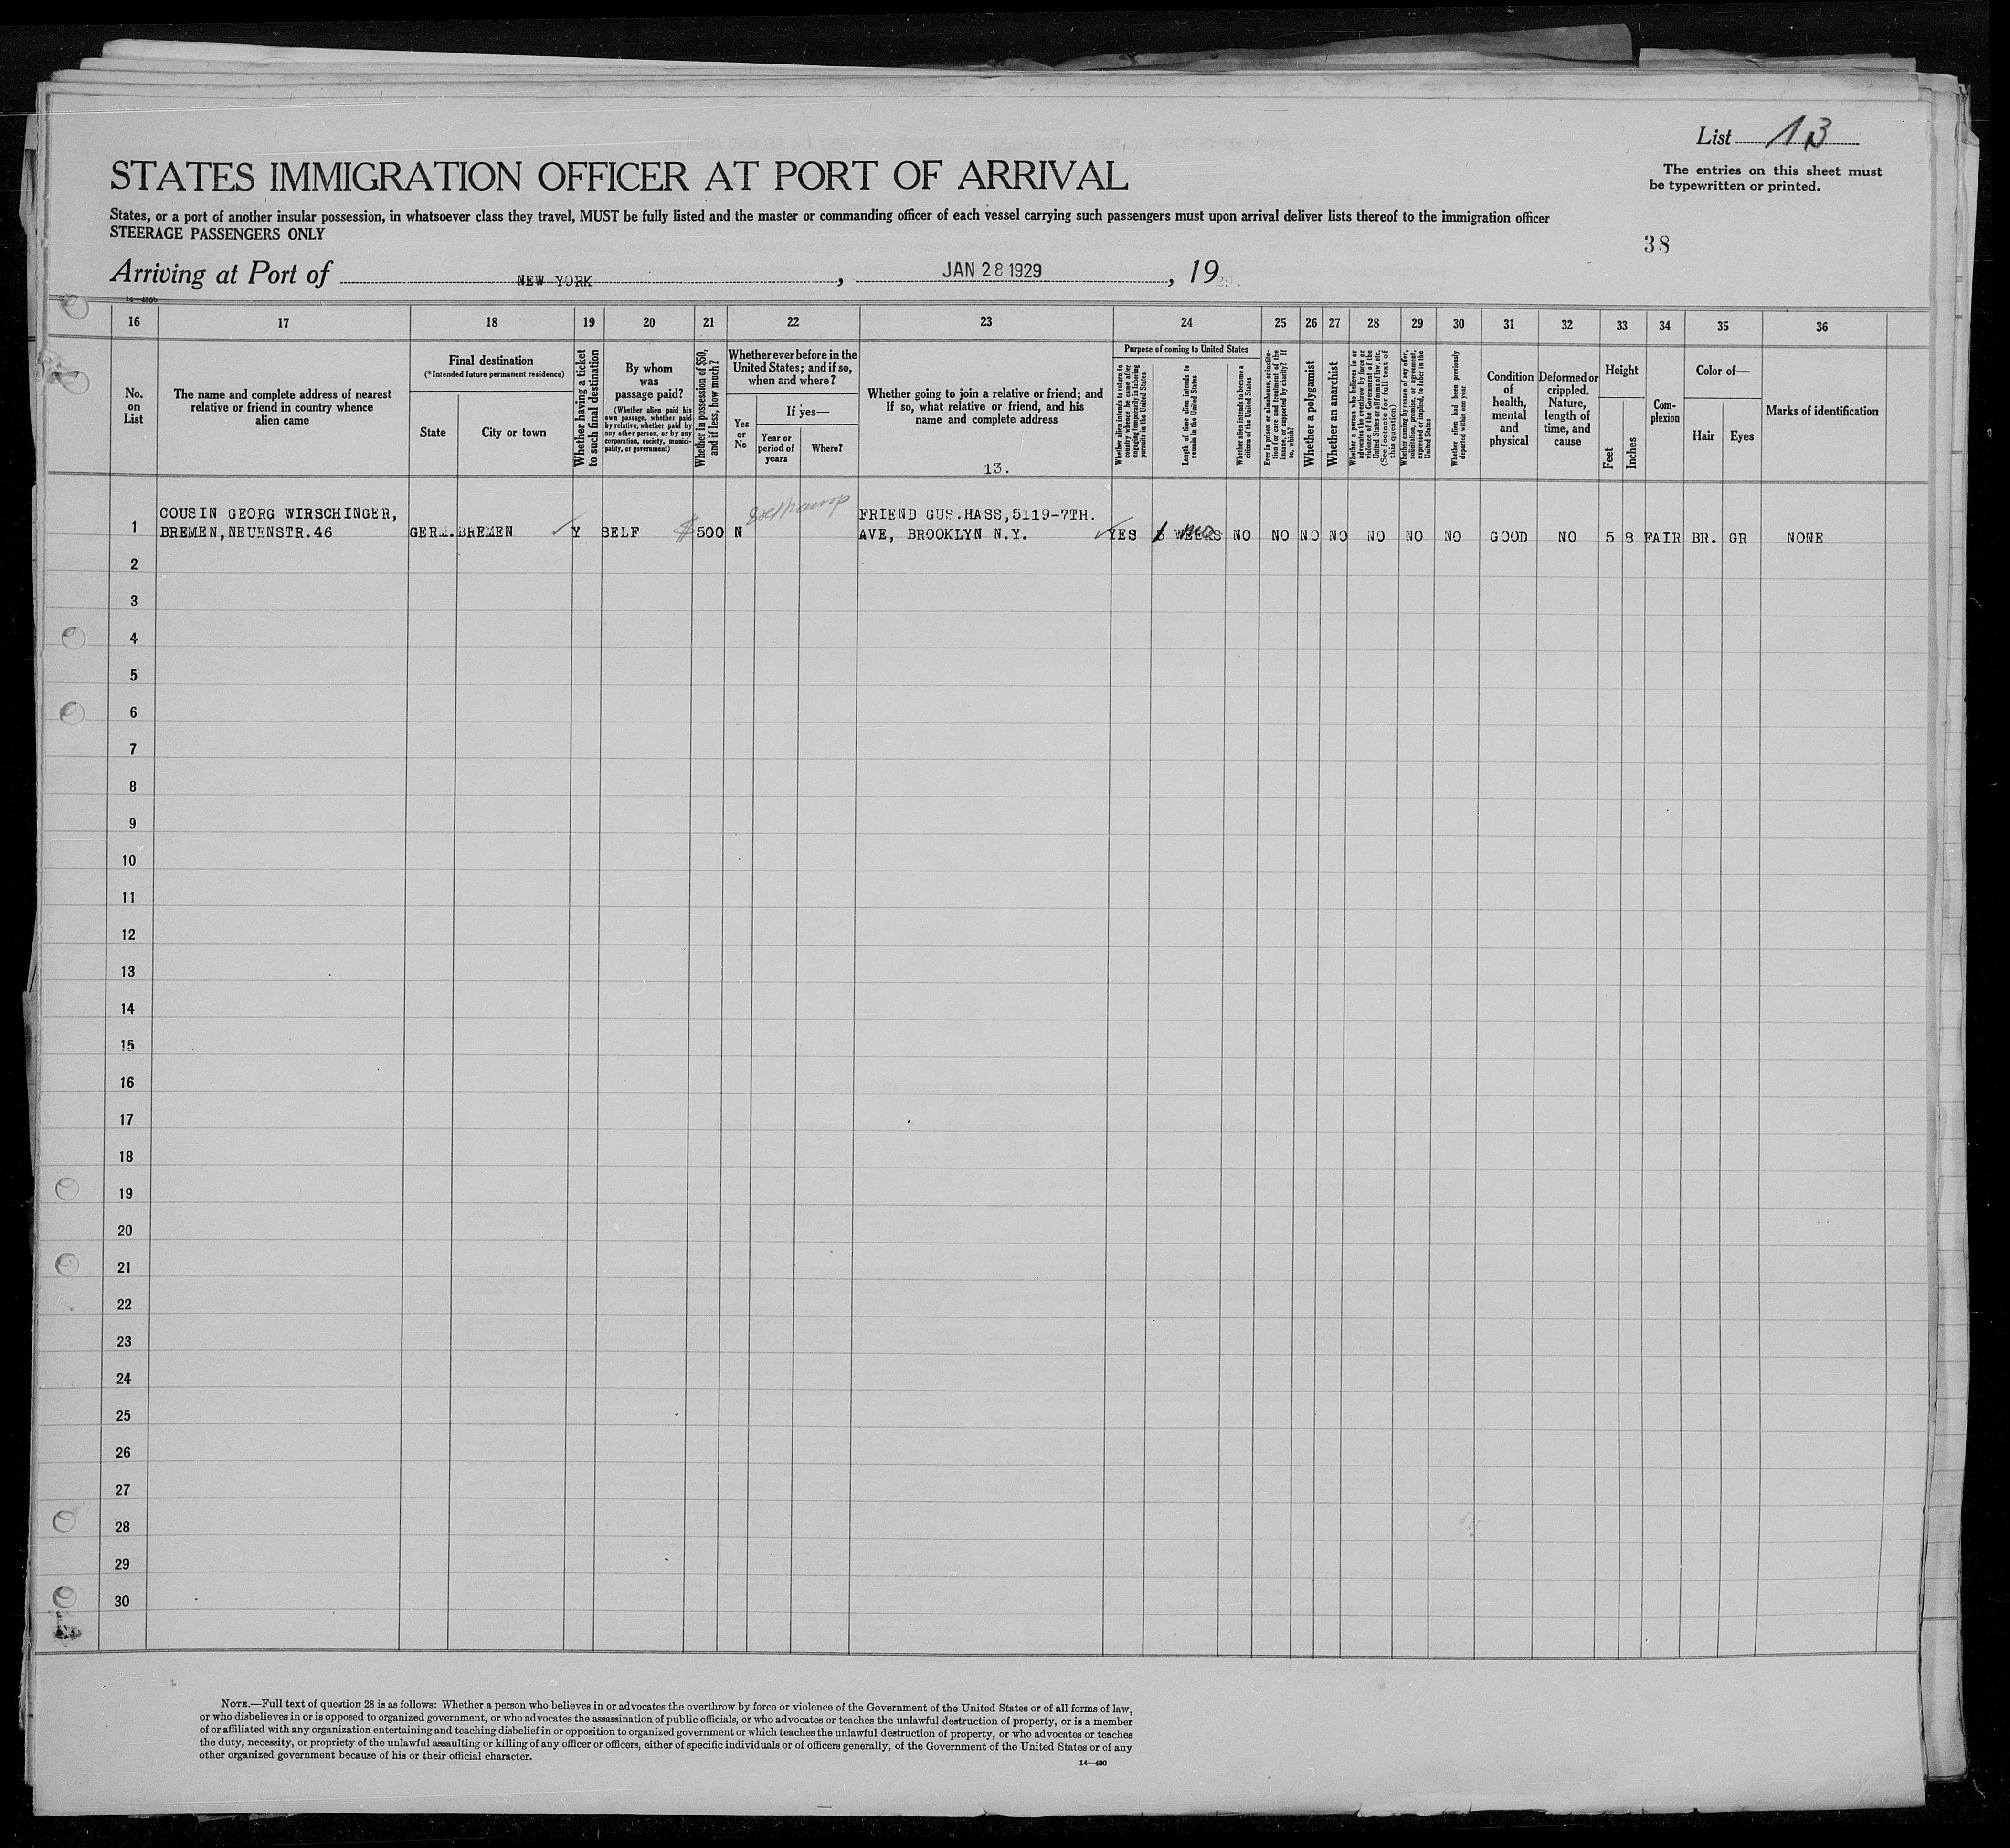 List 13
STATES IMMIGRATION OFFICER AT PORT OF ARRIVAL
The entries on this sheet must
be typewritten or printed.
States, or a port of another insular possession, in whatsoever class they travel, MUST be fully listed and the master or commanding officer of each vessel carrying such passengers must upon arrival deliver lists thereof to the immigration officer
STEERAGE PASSENGERS ONLY
38
Arriving at Port of NEW YORK, JAN 28 1929, 19
14—430b
16 17 18 19 20 21 22 23 24 25 26 27 28 29 30 31 32 33 34 35 36
No.
on
List
The name and complete address of nearest
relative or friend in country whence
alien came
Final destination
(*Intended future permanent residence)
State
City or town
Whether having a ticket
to such final destination
By whom
was
passage paid?
(Whether alien paid his
own passage, whether paid
by relative, whether paid by
any other person, or by any
corporation, society, munici-
pality, or government)
Whether in possession of $50,
and if less, how much?
Whether ever before in the
United States; and if so,
when and where?
Yes
or
No
If yes—
Year or
period of
years
Where?
Whether going to join a relative or friend; and
if so, what relative or friend, and his
name and complete address
13.
Purpose of coming to United States
Whether alien intends to return to
country whence he came after
engaging temporarily in laboring
pursuits in the United States
Length of time alien intends to
remain in the United States
Whether alien intends to become a
citizen of the United States
Ever in prison or almshouse, or institu-
tion for care and treatment of the
insane, or supported by charity? If
so, which?
Whether a polygamist
Whether an anarchist
Whether a person who believes in or
advocates the overthrow by force or
violence of the Government of the
United States or all forms of law, etc.
(See footnote for full text of
this question)
Whether coming by reason of any offer,
solicitation, promise, or agreement,
expressed or implied, to labor in the
United States
Whether alien had been previously
deported within one year
Condition
of
health,
mental
and
physical
Deformed or
crippled.
Nature,
length of
time, and
cause
Height
Feet
Inches
Com-
plexion
Color of—
Hair
Eyes
Marks of identification
1
COUSIN GEORG WIRSCHINGER,
BREMEN, NEUENSTR.46
GERM. BREMEN Y SELF $500 N
FRIEND GUS.HASS,5119-7TH.
AVE, BROOKLYN N.Y.
YES WEEKS NO NO NO NO NO NO NO GOOD NO 5 8 FAIR BR. GR NONE
2
3
4
5
6
7
8
9
10
11
12
13
14
15
16
17
18
19
20
21
22
23
24
25
26
27
28
29
30
NOTE.—Full text of question 28 is as follows: Whether a person who believes in or advocates the overthrow by force or violence of the Government of the United States or of all forms of law,
or who disbelieves in or is opposed to organized government, or who advocates the assassination of public officials, or who advocates or teaches the unlawful destruction of property, or is a member
of or affiliated with any organization entertaining and teaching disbelief in or opposition to organized government or which teaches the unlawful destruction of property, or who advocates or teaches
the duty, necessity, or propriety of the unlawful assaulting or killing of any officer or officers, either of specific individuals or of officers generally, of the Government of the United States or of any
other organized government because of his or their official character.
14—430